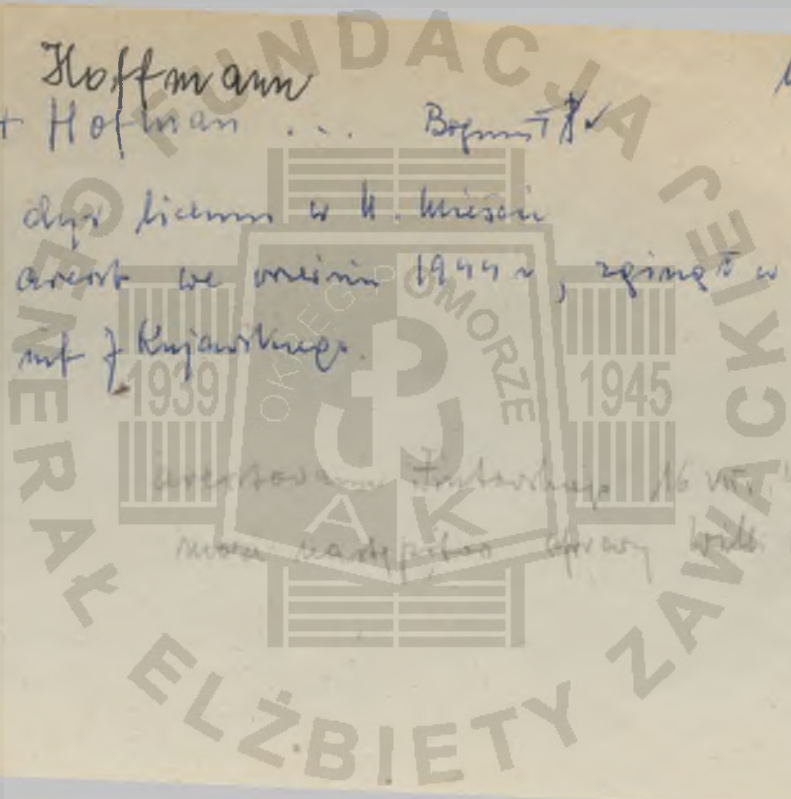 Hoffmann
+ Hofman ... Bogumił
dyr. liceum w N. Mieście
areszt we wrześniu 1944 r, zginął w
inf J Kujawskiego.
aresztowanie 16 VIII
może następstwo sprawy
FUNDACJA GENERAŁ ELŻBIETY ZAWACKIEJ
OKRĘG POMORZE
1939 1945
AK